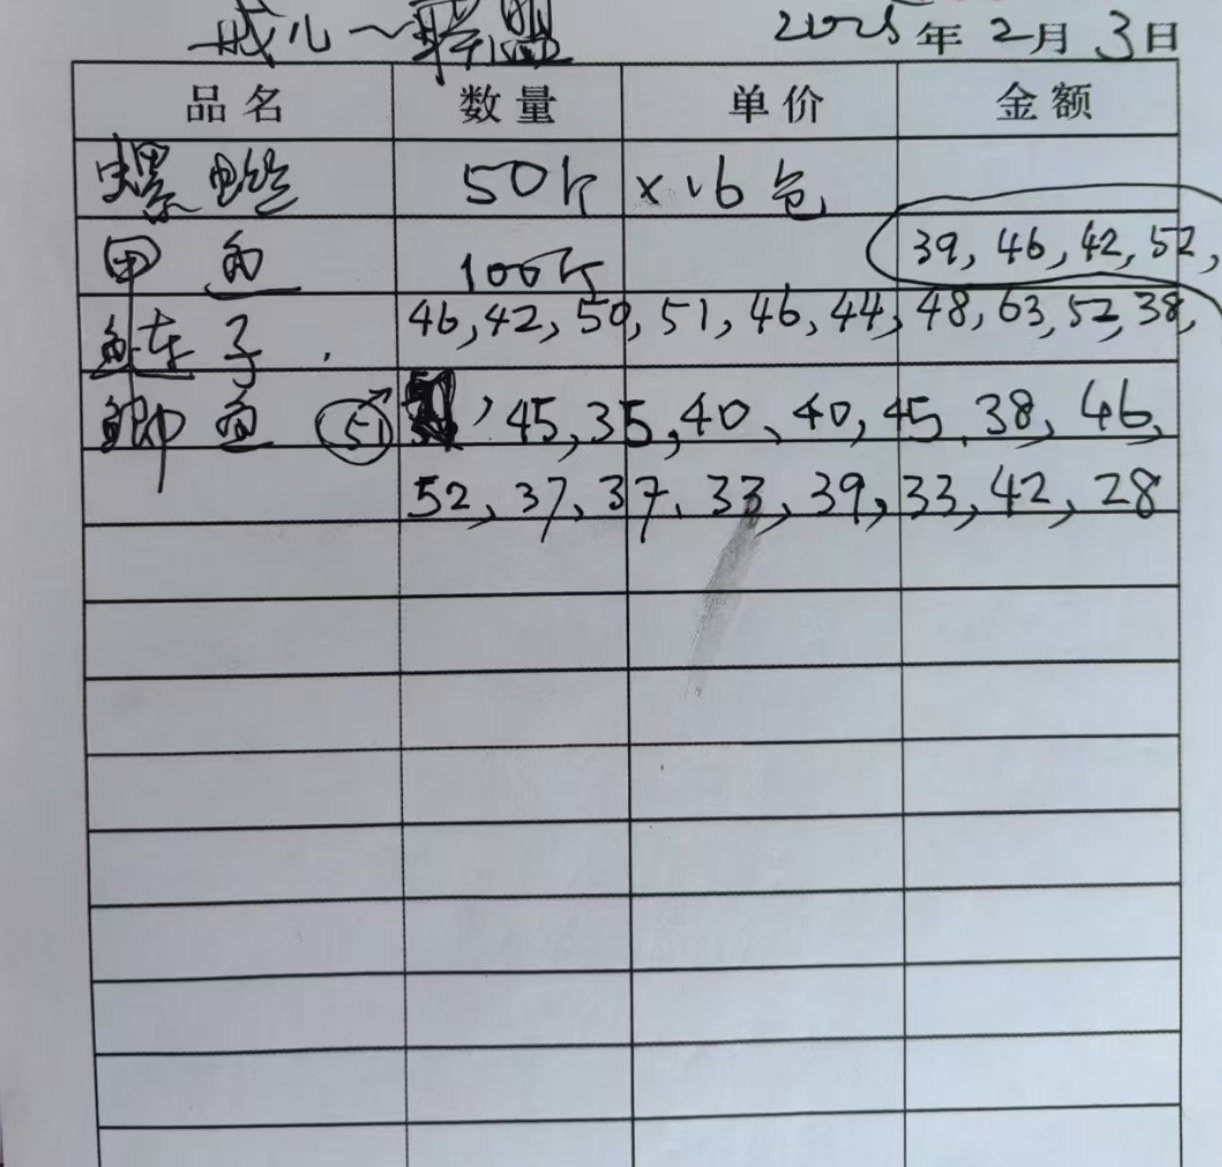 戒儿～联盟 2025年2月3日
品名 数量 单价 金额
螺蛳 50斤 ×16包
甲鱼 100斤 39, 46, 42, 52,
鲢子. 46, 42, 50, 51, 46, 44, 48, 63, 52, 38,
鲫鱼 51 , 45, 35, 40、40, 45. 38, 46,
52, 37, 37. 33, 39, 33, 42, 28